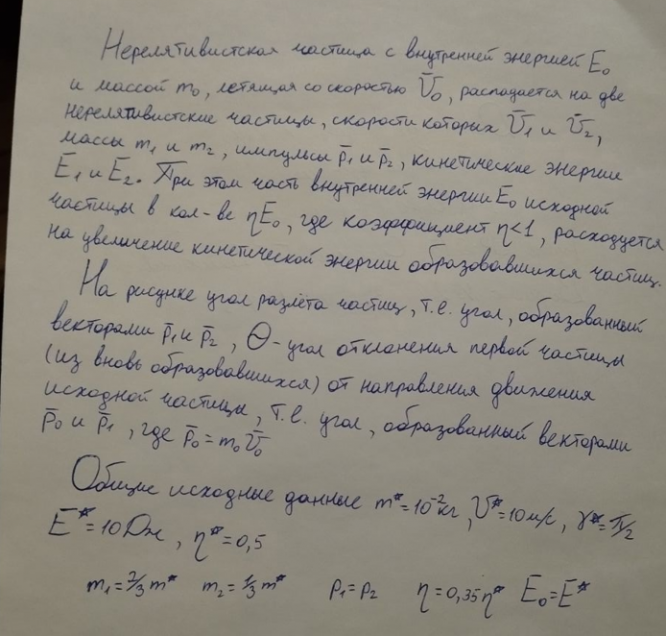 Нерелятивистская частица с внутренней энергией E₀
и массой m₀, летящая со скоростью V̄₀, распадается на две
нерелятивистские частицы, скорости которых V̄₁ и V̄₂,
массы m₁ и m₂, импульсы p̄₁ и p̄₂, кинетические энергии
Ē₁ и Ē₂. При этом часть внутренней энергии E₀ исходной
частицы в кол-ве ηE₀, где коэффициент η<1, расходуется
на увеличение кинетической энергии образовавшихся частиц.
На рисунке угол разлёта частиц, т.е. угол, образованный
векторами p̄₁ и p̄₂, Θ-угол отклонения первой частицы
(из вновь образовавшихся) от направления движения
исходной частицы, т.е. угол, образованный векторами
p̄₀ и p̄₁, где p̄₀=m₀V̄₀
Общие исходные данные m*=10⁻²кг, V*=10м/с, γ*=π/2
E*=10Дж, η*=0,5
m₁=2/3m* m₂=1/3m* p₁=p₂ η=0,35η* E₀=E*